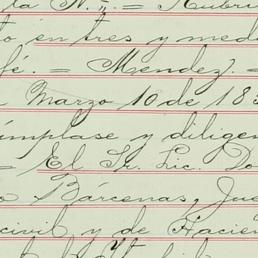 la N.. = Rubri
to en tres y med
fé. = Mendez. =
Marzo 10 de 18
úmplase y diligen
= El Sr. Lic. Do
o Bárcenas, Jue
civil y de Hacien